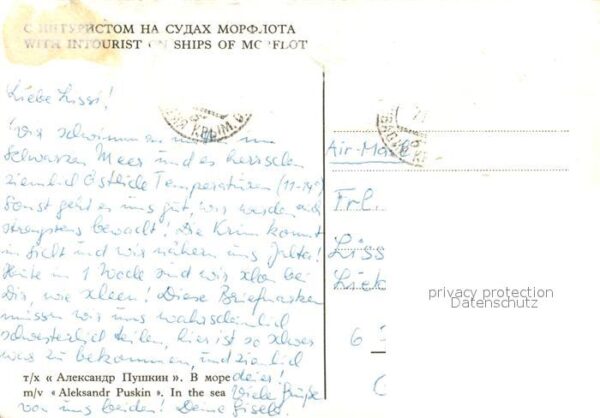 С ИНТУРИСТОМ НА СУДАХ МОРФЛОТА
WITH INTOURIST ON SHIPS OF MORFLOT
Liebe Lissi!
Wir schwimmen im
Schwarzen Meer und es herrschen
ziemlich Östliche Temperaturen (11-14°)
Sonst geht es uns gut, wir werden
strengstens bewacht! Die Krim kommt
in Sicht und wir nähern uns Jalta!
Heute in 1 Woche sind wir schon bei
Dir, wie schön! Diese Briefmarken
müssen wir uns wahrscheinlich
schwesterlich teilen, hier ist so schwer
was zu bekommen, und ziemlich
teuer!
т/х « Александр Пушкин ». В море
m/v « Aleksandr Puskin ». In the sea
Viele Grüße
von uns beiden! Deine Gisela.
КРЫМ
Air-Mail
Frl.
Liss
6
privacy protection
Datenschutz